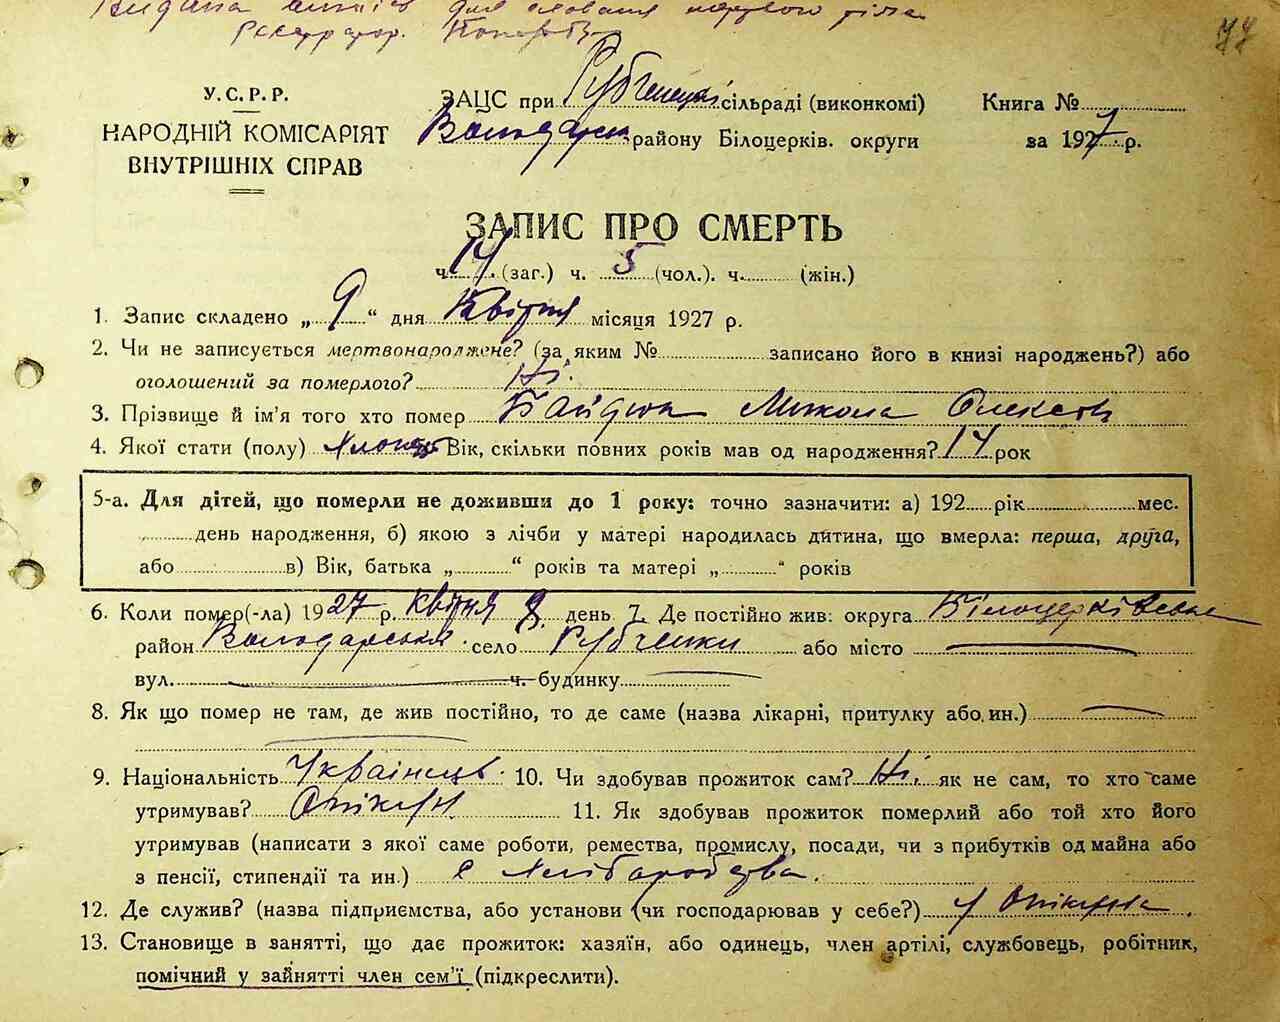 Видана виписъ для ховання мертвого тіла
У.С.Р.Р.
НАРОДНІЙ КОМІСАРІЯТ
ВНУТРІШНІХ СПРАВ
ЗАЦС при Рубченецкі сільраді (виконкомі)
Володарськ району Білоцерків. округи
Книга №
за 1927 р.
ЗАПИС ПРО СМЕРТЬ
ч. 14 (заг.) ч. 5 (чол.). ч. (жін.)
1. Запис складено „ 9 “ дня Квітня місяця 1927 р.
2. Чи не записується мертвонароджене? (за яким № записано його в книзі народжень?) або
оголошений за померлого? Ні.
3. Прізвище й ім’я того хто помер Байдюк Микола Олексів
4. Якої стати (полу) Хлопець Вік, скільки повних років мав од народження? 14 рок
5-а. Для дітей, що померли не доживши до 1 року: точно зазначити: а) 192 рік мес.
день народження, б) якою з лічби у матері народилась дитина, що вмерла: перша, друга,
або в) Вік, батька „ “ років та матері „ “ років
6. Коли помер(-ла) 1927 р. квітня 8 день 7. Де постійно жив: округа Білоцерківська
район Володарський село Рубченки або місто
вул. ч. будинку
8. Як що помер не там, де жив постійно, то де саме (назва лікарні, притулку або ин.)
9. Національність Українець 10. Чи здобував прожиток сам? Ні. як не сам, то хто саме
утримував? Опікун 11. Як здобував прожиток померлий або той хто його
утримував (написати з якої саме роботи, ремества, промислу, посади, чи з прибутків од майна або
з пенсії, стипендії та ин.) с Хліборобства.
12. Де служив? (назва підприємства, або установи (чи господарював у себе?) у Опікуна.
13. Становище в занятті, що дає прожиток: хазяїн, або одинець, член артілі, службовець, робітник,
помічний у зайнятті член сем’ї (підкреслити).